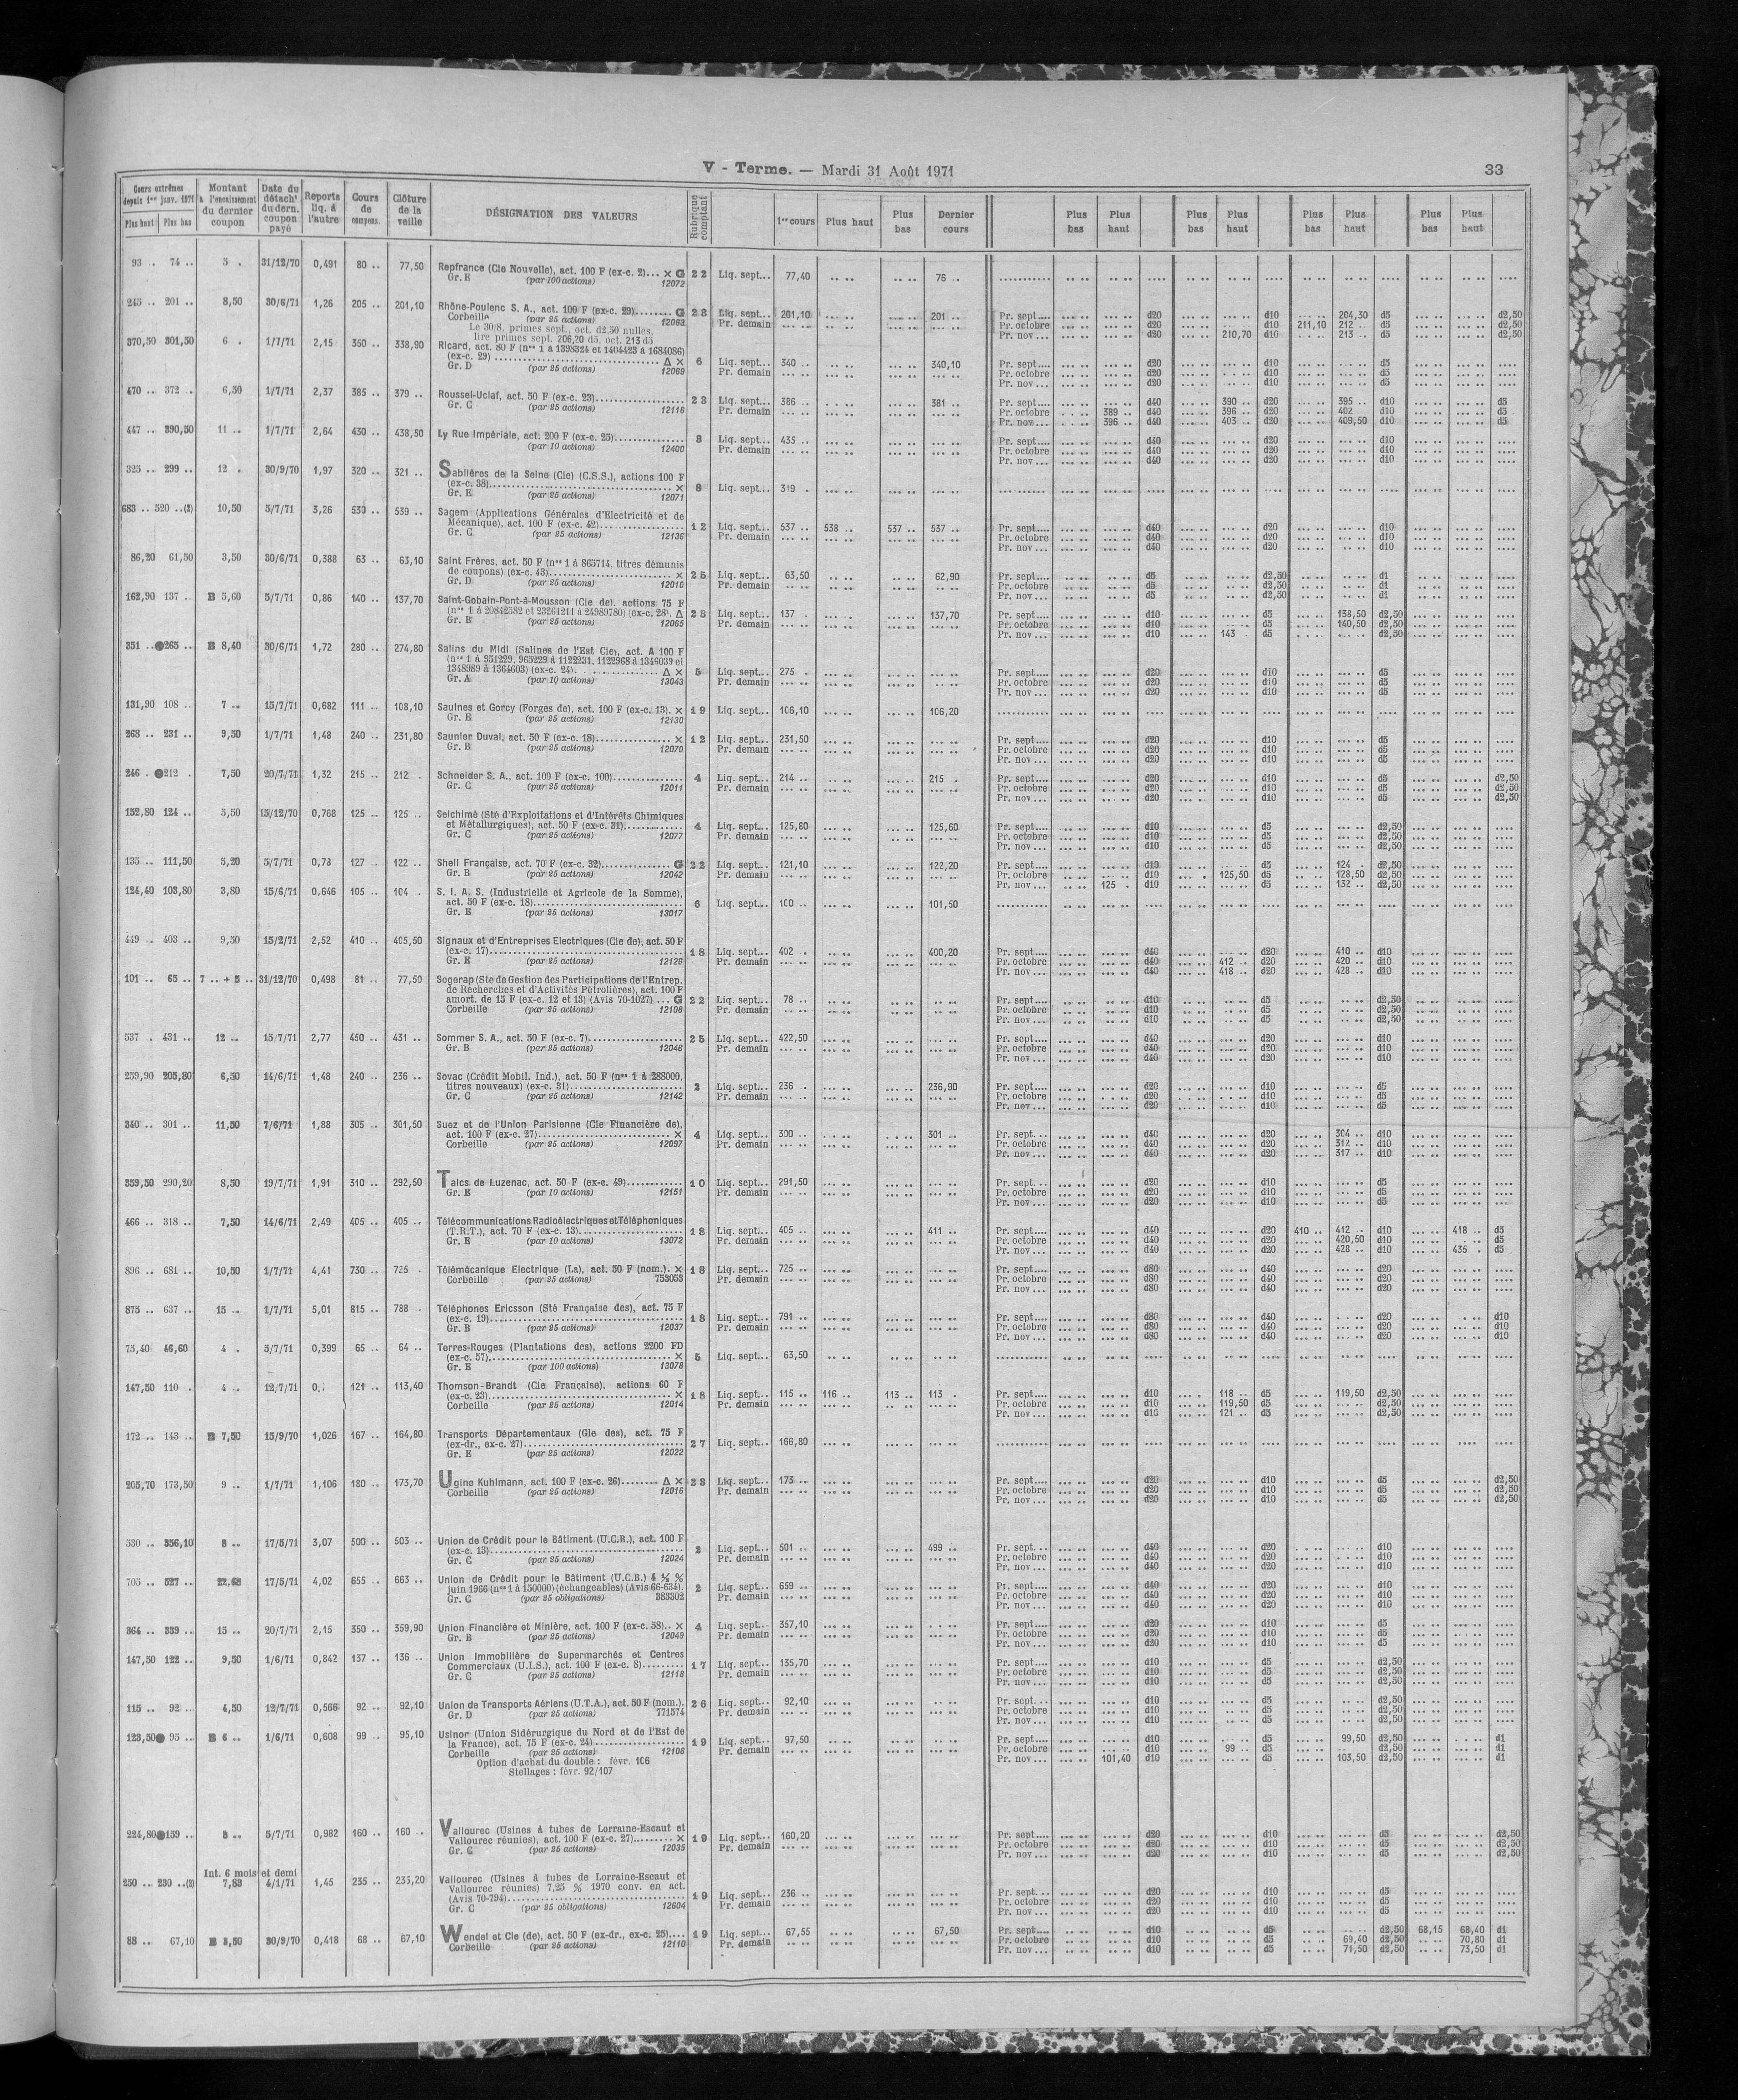 V - Terme. — Mardi 31 Août 1971
33
Cours extrêmes depuis 1er janv. 1971 Plus haut Plus bas | Montant à l'encaissement du dernier coupon | Date du détacht du dern. coupon payé | Reports liq. à l'autre | Cours de compens. | Clôture de la veille | DÉSIGNATION DES VALEURS | Rubrique comptant | 1er cours | Plus haut | Plus bas | Dernier cours | Plus bas | Plus haut | Plus bas | Plus haut | Plus bas | Plus haut | Plus bas | Plus haut
93 . 74 .. 5 . 31/12/70 0,491 80 .. 77,50 Repfrance (Cie Nouvelle), act. 100 F (ex-c. 2)... × G 22 Liq. sept... 77,40 76 ..
Gr. E (par 100 actions) 12072
245 .. 201 .. 8,50 30/6/71 1,26 205 .. 201,10 Rhône-Poulenc S. A., act. 100 F (ex-c. 29)........ G 28 Liq. sept... 201,10 201 .. Pr. sept.... d20 d10 204,30 d5 d2,50
Corbeille (par 25 actions) 12063 Pr. demain Pr. octobre d20 d10 211,10 212 .. d5 d2,50
Le 30/8, primes sept., oct. d2,50 nulles, Pr. nov... d20 210,70 d10 213 .. d5 d2,50
lire primes sept. 206,20 d5, oct. 213 d5
370,50 301,50 6 . 1/7/71 2,15 350 .. 338,90 Ricard, act. 80 F (nos 1 à 1398324 et 1404423 à 1684086)
(ex-c. 29) ........ Δ × 6 Liq. sept... 340 .. 340,10 Pr. sept.... d20 d10 d5
Gr. D (par 25 actions) 12069 Pr. demain Pr. octobre d20 d10 d5
Pr. nov... d20 d10 d5
470 .. 372 .. 6,50 1/7/71 2,37 385 .. 379 .. Roussel-Uclaf, act. 50 F (ex-c. 23)........ 23 Liq. sept... 386 .. 381 .. Pr. sept.... d40 390 .. d20 395 .. d10 d5
Gr. C (par 25 actions) 12116 Pr. demain Pr. octobre 389 .. d40 396 .. d20 402 d10 d5
Pr. nov... 396 .. d40 403 .. d20 409,50 d10 d5
447 .. 390,50 11 .. 1/7/71 2,64 430 .. 438,50 Ly Rue Impériale, act. 200 F (ex-c. 25)........ 8 Liq. sept... 435 .. Pr. sept.... d40 d20 d10
(par 10 actions) 12400 Pr. demain Pr. octobre d40 d20 d10
Pr. nov... d40 d20 d10
325 .. 299 .. 12 . 30/9/70 1,97 320 .. 321 .. Sablières de la Seine (Cie) (C.S.S.), actions 100 F
(ex-c. 38)........ × 8 Liq. sept... 319 .
Gr. E (par 25 actions) 12071
683 .. 520 ..(2) 10,50 5/7/71 3,26 530 .. 539 .. Sagem (Applications Générales d'Electricité et de
Mécanique), act. 100 F (ex-c. 42)........ 12 Liq. sept... 537 .. 538 .. 537 .. 537 .. Pr. sept.... d40 d20 d10
Gr. C (par 25 actions) 12136 Pr. demain Pr. octobre d40 d20 d10
Pr. nov... d40 d20 d10
86,20 61,50 3,50 30/6/71 0,388 63 .. 63,10 Saint Frères, act. 50 F (nos 1 à 865714, titres démunis
de coupons) (ex-c. 43)........ × 25 Liq. sept... 63,50 62,90 Pr. sept.... d5 d2,50 d1
Gr. D (par 25 actions) 12010 Pr. demain Pr. octobre d5 d2,50 d1
Pr. nov... d5 d2,50 d1
162,90 137 .. B 5,60 5/7/71 0,86 140 .. 137,70 Saint-Gobain-Pont-à-Mousson (Cie de), actions 75 F
(nos 1 à 20842582 et 23261211 à 24989780) (ex-c. 28). Δ 28 Liq. sept... 137 . 137,70 Pr. sept.... d10 d5 138,50 d2,50
Gr. B (par 25 actions) 12065 Pr. demain Pr. octobre d10 d5 140,50 d2,50
Pr. nov... d10 143 d5 d2,50
351 ..●265 .. B 8,40 30/6/71 1,72 280 .. 274,80 Salins du Midi (Salines de l'Est Cie), act. A 100 F
(nos 1 à 951229, 965229 à 1122231, 1122968 à 1346039 et
1348989 à 1364603) (ex-c. 24). ........ Δ × 5 Liq. sept... 275 . Pr. sept.... d20 d10 d5
Gr. A (par 10 actions) 13043 Pr. demain Pr. octobre d20 d10 d5
Pr. nov... d20 d10 d5
131,90 108 .. 7 .. 15/7/71 0,682 111 .. 108,10 Saulnes et Gorcy (Forges de), act. 100 F (ex-c. 13). × 19 Liq. sept... 106,10 106,20
Gr. E (par 25 actions) 12130
268 .. 231 .. 9,50 1/7/71 1,48 240 .. 231,80 Saunier Duval, act. 50 F (ex-c. 18)........ × 12 Liq. sept... 231,50 Pr. sept.... d20 d10 d5
Gr. B (par 25 actions) 12070 Pr. demain Pr. octobre d20 d10 d5
Pr. nov... d20 d10 d5
246 . ●212 . 7,50 20/7/71 1,32 215 .. 212 . Schneider S. A., act. 100 F (ex-c. 100)........ 4 Liq. sept... 214 .. 215 . Pr. sept.... d20 d10 d5 d2,50
Gr. C (par 25 actions) 12011 Pr. demain Pr. octobre d20 d10 d5 d2,50
Pr. nov... d20 d10 d5 d2,50
152,80 124 .. 5,50 15/12/70 0,768 125 .. 125 .. Seichimé (Sté d'Exploitations et d'Intérêts Chimiques
et Métallurgiques), act. 50 F (ex-c. 31)........ 4 Liq. sept... 125,80 125,60 Pr. sept.... d10 d5 d2,50
Gr. C (par 25 actions) 12077 Pr. demain Pr. octobre d10 d5 d2,50
Pr. nov... d10 d5 d2,50
135 .. 111,50 5,20 5/7/71 0,73 127 122 .. Shell Française, act. 70 F (ex-c. 32)........ G 22 Liq. sept... 121,10 122,20 Pr. sept.... d10 d5 124 . d2,50
Gr. B (par 25 actions) 12042 Pr. demain Pr. octobre d10 125,50 d5 128,50 d2,50
Pr. nov... 125 . d10 d5 132 .. d2,50
124,40 103,80 3,80 15/6/71 0,646 105 .. 104 . S. I. A. S. (Industrielle et Agricole de la Somme),
act. 50 F (ex-c. 18)........ 6 Liq. sept... 100 .. 101,50
Gr. E (par 25 actions) 13017
449 .. 403 .. 9,50 15/2/71 2,52 410 .. 405,50 Signaux et d'Entreprises Electriques (Cie de), act. 50 F
(ex-c. 17)........ 18 Liq. sept... 402 . 400,20 Pr. sept.... d40 d20 410 .. d10
Gr. E (par 25 actions) 12126 Pr. demain Pr. octobre d40 412 .. d20 420 .. d10
Pr. nov... d40 418 .. d20 428 .. d10
101 .. 65 .. 7 .. + 5 .. 31/12/70 0,498 81 .. 77,50 Sogerap (Ste de Gestion des Participations de l'Entrep.
de Recherches et d'Activités Pétrolières), act. 100 F
amort. de 15 F (ex-c. 12 et 13) (Avis 70-1027) ... G 22 Liq. sept... 78 .. Pr. sept.... d10 d5 d2,50
Corbeille (par 25 actions) 12108 Pr. demain Pr. octobre d10 d5 d2,50
Pr. nov... d10 d5 d2,50
537 . 431 .. 12 .. 15/7/71 2,77 450 .. 431 .. Sommer S. A., act. 50 F (ex-c. 7)........ 25 Liq. sept... 422,50 Pr. sept.... d40 d20 d10
Gr. B (par 25 actions) 12046 Pr. demain Pr. octobre d40 d20 d10
Pr. nov... d40 d20 d10
259,90 205,80 6,50 14/6/71 1,48 240 .. 236 .. Sovac (Crédit Mobil. Ind.), act. 50 F (nos 1 à 288000,
titres nouveaux) (ex-c. 31)........ 2 Liq. sept... 236 . 236,90 Pr. sept.... d20 d10 d5
Gr. C (par 25 actions) 12142 Pr. demain Pr. octobre d20 d10 d5
Pr. nov... d20 d10 d5
340 .. 301 .. 11,50 7/6/71 1,88 305 .. 301,50 Suez et de l'Union Parisienne (Cie Financière de),
act. 100 F (ex-c. 27)........ × 4 Liq. sept... 300 .. 301 .. Pr. sept... d40 d20 304 .. d10
Corbeille (par 25 actions) 12097 Pr. demain Pr. octobre d40 d20 312 .. d10
Pr. nov... d40 d20 317 .. d10
359,50 290,20 8,50 19/7/71 1,91 310 .. 292,50 Talcs de Luzenac, act. 50 F (ex-c. 49)........ 10 Liq. sept... 291,50 Pr. sept... d20 d10 d5
Gr. E (par 10 actions) 12151 Pr. demain Pr. octobre d20 d10 d5
Pr. nov... d20 d10 d5
466 .. 318 .. 7,50 14/6/71 2,49 405 .. 405 .. Télécommunications Radioélectriques et Téléphoniques
(T.R.T.), act. 70 F (ex-c. 13)........ 18 Liq. sept... 405 .. 411 .. Pr. sept.... d40 d20 410 .. 412 .. d10 418 .. d5
Gr. E (par 10 actions) 13072 Pr. demain Pr. octobre d40 d20 420,50 d10 d5
Pr. nov... d40 d20 428 .. d10 435 . d5
896 .. 681 .. 10,50 1/7/71 4,41 730 .. 725 . Télémécanique Electrique (La), act. 50 F (nom.). × 18 Liq. sept... 725 .. Pr. sept.... d80 d40 d20
Corbeille (par 25 actions) 753053 Pr. demain Pr. octobre d80 d40 d20
Pr. nov... d80 d40 d20
875 .. 637 .. 15 .. 1/7/71 5,01 815 .. 788 .. Téléphones Ericsson (Sté Française des), act. 75 F
(ex-c. 19)........ 18 Liq. sept... 791 .. Pr. sept.... d80 d40 d20 d10
Gr. B (par 25 actions) 12037 Pr. demain Pr. octobre d80 d40 d20 d10
Pr. nov... d80 d40 d20 d10
75,40 46,60 4 . 5/7/71 0,399 65 .. 64 .. Terres-Rouges (Plantations des), actions 2200 FD
(ex-c. 57)........ × 5 Liq. sept... 63,50
Gr. E (par 100 actions) 13078
147,50 110 . 4 .. 12/7/71 121 .. 113,40 Thomson-Brandt (Cie Française), actions 60 F
(ex-c. 23)........ × 18 Liq. sept... 115 .. 116 .. 113 .. 113 . Pr. sept.... d10 118 .. d5 119,50 d2,50
Corbeille (par 25 actions) 12014 Pr. demain Pr. octobre d10 119,50 d5 d2,50
Pr. nov... d10 121 .. d5 d2,50
172 .. 143 .. B 7,50 15/9/70 1,026 167 .. 164,80 Transports Départementaux (Gle des), act. 75 F
(ex-dr., ex-c. 27)........ 27 Liq. sept... 166,80
Gr. E (par 25 actions) 12022
205,70 173,50 9 .. 1/7/71 1,106 180 .. 173,70 Ugine Kuhlmann, act. 100 F (ex-c. 26)........ Δ × 28 Liq. sept... 175 .. Pr. sept.... d20 d10 d5 d2,50
Corbeille (par 25 actions) 12016 Pr. demain Pr. octobre d20 d10 d5 d2,50
Pr. nov... d20 d10 d5 d2,50
530 .. 356,10 8 .. 17/5/71 3,07 500 .. 503 .. Union de Crédit pour le Bâtiment (U.C.B.), act. 100 F
(ex-c. 13)........ 2 Liq. sept... 501 .. 499 .. Pr. sept... d40 d20 d10
Gr. C (par 25 actions) 12024 Pr. demain Pr. octobre d40 d20 d10
Pr. nov... d40 d20 d10
705 .. 527 .. 22,68 17/5/71 4,02 655 .. 663 .. Union de Crédit pour le Bâtiment (U.C.B.) 4 ½ %
juin 1966 (nos 1 à 150000) (échangeables) (Avis 66-634). 2 Liq. sept... 659 .. Pr. sept.... d40 d20 d10
Gr. C (par 25 obligations) 383302 Pr. demain Pr. octobre d40 d20 d10
Pr. nov... d40 d20 d10
364 .. 339 .. 15 .. 20/7/71 2,15 350 .. 359,90 Union Financière et Minière, act. 100 F (ex-c. 58).. × 4 Liq. sept... 357,10 Pr. sept.... d20 d10 d5
Gr. B (par 25 actions) 12049 Pr. demain Pr. octobre d20 d10 d5
Pr. nov... d20 d10 d5
147,50 122 .. 9,50 1/6/71 0,842 137 .. 136 .. Union Immobilière de Supermarchés et Centres
Commerciaux (U.I.S.), act. 100 F (ex-c. 8)........ 17 Liq. sept... 135,70 Pr. sept.... d10 d5 d2,50
Gr. C (par 25 actions) 12118 Pr. demain Pr. octobre d10 d5 d2,50
Pr. nov... d10 d5 d2,50
115 .. 92 .. 4,50 12/7/71 0,566 92 .. 92,10 Union de Transports Aériens (U.T.A.), act. 50 F (nom.). 26 Liq. sept... 92,10 Pr. sept... d10 d5 d2,50
Gr. D (par 25 actions) 771574 Pr. demain Pr. octobre d10 d5 d2,50
Pr. nov... d10 d5 d2,50
123,50● 95 .. B 6 .. 1/6/71 0,608 99 .. 95,10 Usinor (Union Sidérurgique du Nord et de l'Est de
la France), act. 75 F (ex-c. 24)........ 19 Liq. sept... 97,50 Pr. sept.... d10 d5 99,50 d2,50 d1
Corbeille (par 25 actions) 12106 Pr. demain Pr. octobre d10 99 .. d5 d2,50 d1
Option d'achat du double : févr. 106 Pr. nov... 101,40 d10 d5 103,50 d2,50 d1
Stellages : févr. 92/107
224,80●159 .. 8 .. 5/7/71 0,982 160 .. 160 .. Vallourec (Usines à tubes de Lorraine-Escaut et
Vallourec réunies), act. 100 F (ex-c. 27)........ × 19 Liq. sept... 160,20 Pr. sept.... d20 d10 d5 d2,50
Gr. C (par 25 actions) 12035 Pr. demain Pr. octobre d20 d10 d5 d2,50
Pr. nov... d20 d10 d5 d2,50
Int. 6 mois et demi
250 .. 230 ..(2) 7,83 4/1/71 1,45 235 .. 233,20 Vallourec (Usines à tubes de Lorraine-Escaut et
Vallourec réunies) 7,25 % 1970 conv. en act.
(Avis 70-794)........ 19 Liq. sept... 236 .. Pr. sept... d20 d10 d5
Gr. C (par 25 obligations) 12604 Pr. demain Pr. octobre d20 d10 d5
Pr. nov... d20 d10 d5
88 .. 67,10 B 3,50 30/9/70 0,418 68 .. 67,10 Wendel et Cie (de), act. 50 F (ex-dr., ex-c. 25).... 19 Liq. sept... 67,55 67,50 Pr. sept.... d10 d5 d2,50 68,15 68,40 d1
Corbeille (par 25 actions) 12110 Pr. demain Pr. octobre d10 d5 69,40 d2,50 70,80 d1
Pr. nov... d10 d5 71,50 d2,50 73,50 d1